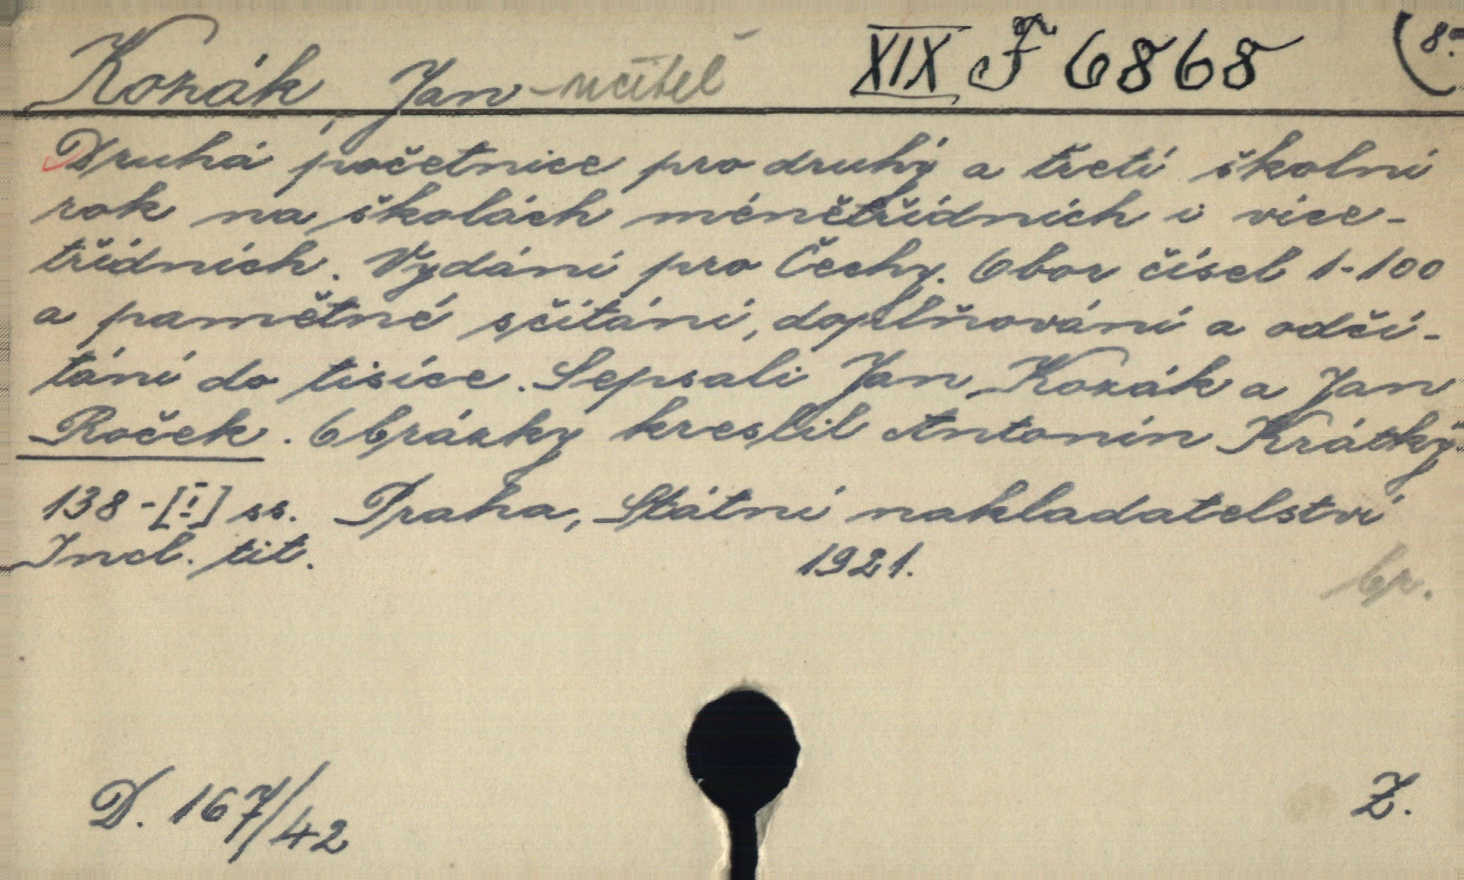 Kozák, Jan - učitel XIX F 6868 (8°
Druhá početnice pro druhý a třetí školní
rok na školách ménětřídních i více-
třídních. Vydání pro Čechy. Obor čísel 1-100
a pamětné sčítání, doplňování a odčí-
tání do tisíce. Sepsali Jan Kozák a Jan
Roček. Obrázky kreslil Antonín Krátký.
138-[I] ss. Praha, Státní nakladatelství
Incl. tit. 1921.
br.
D. 167/42 Z.